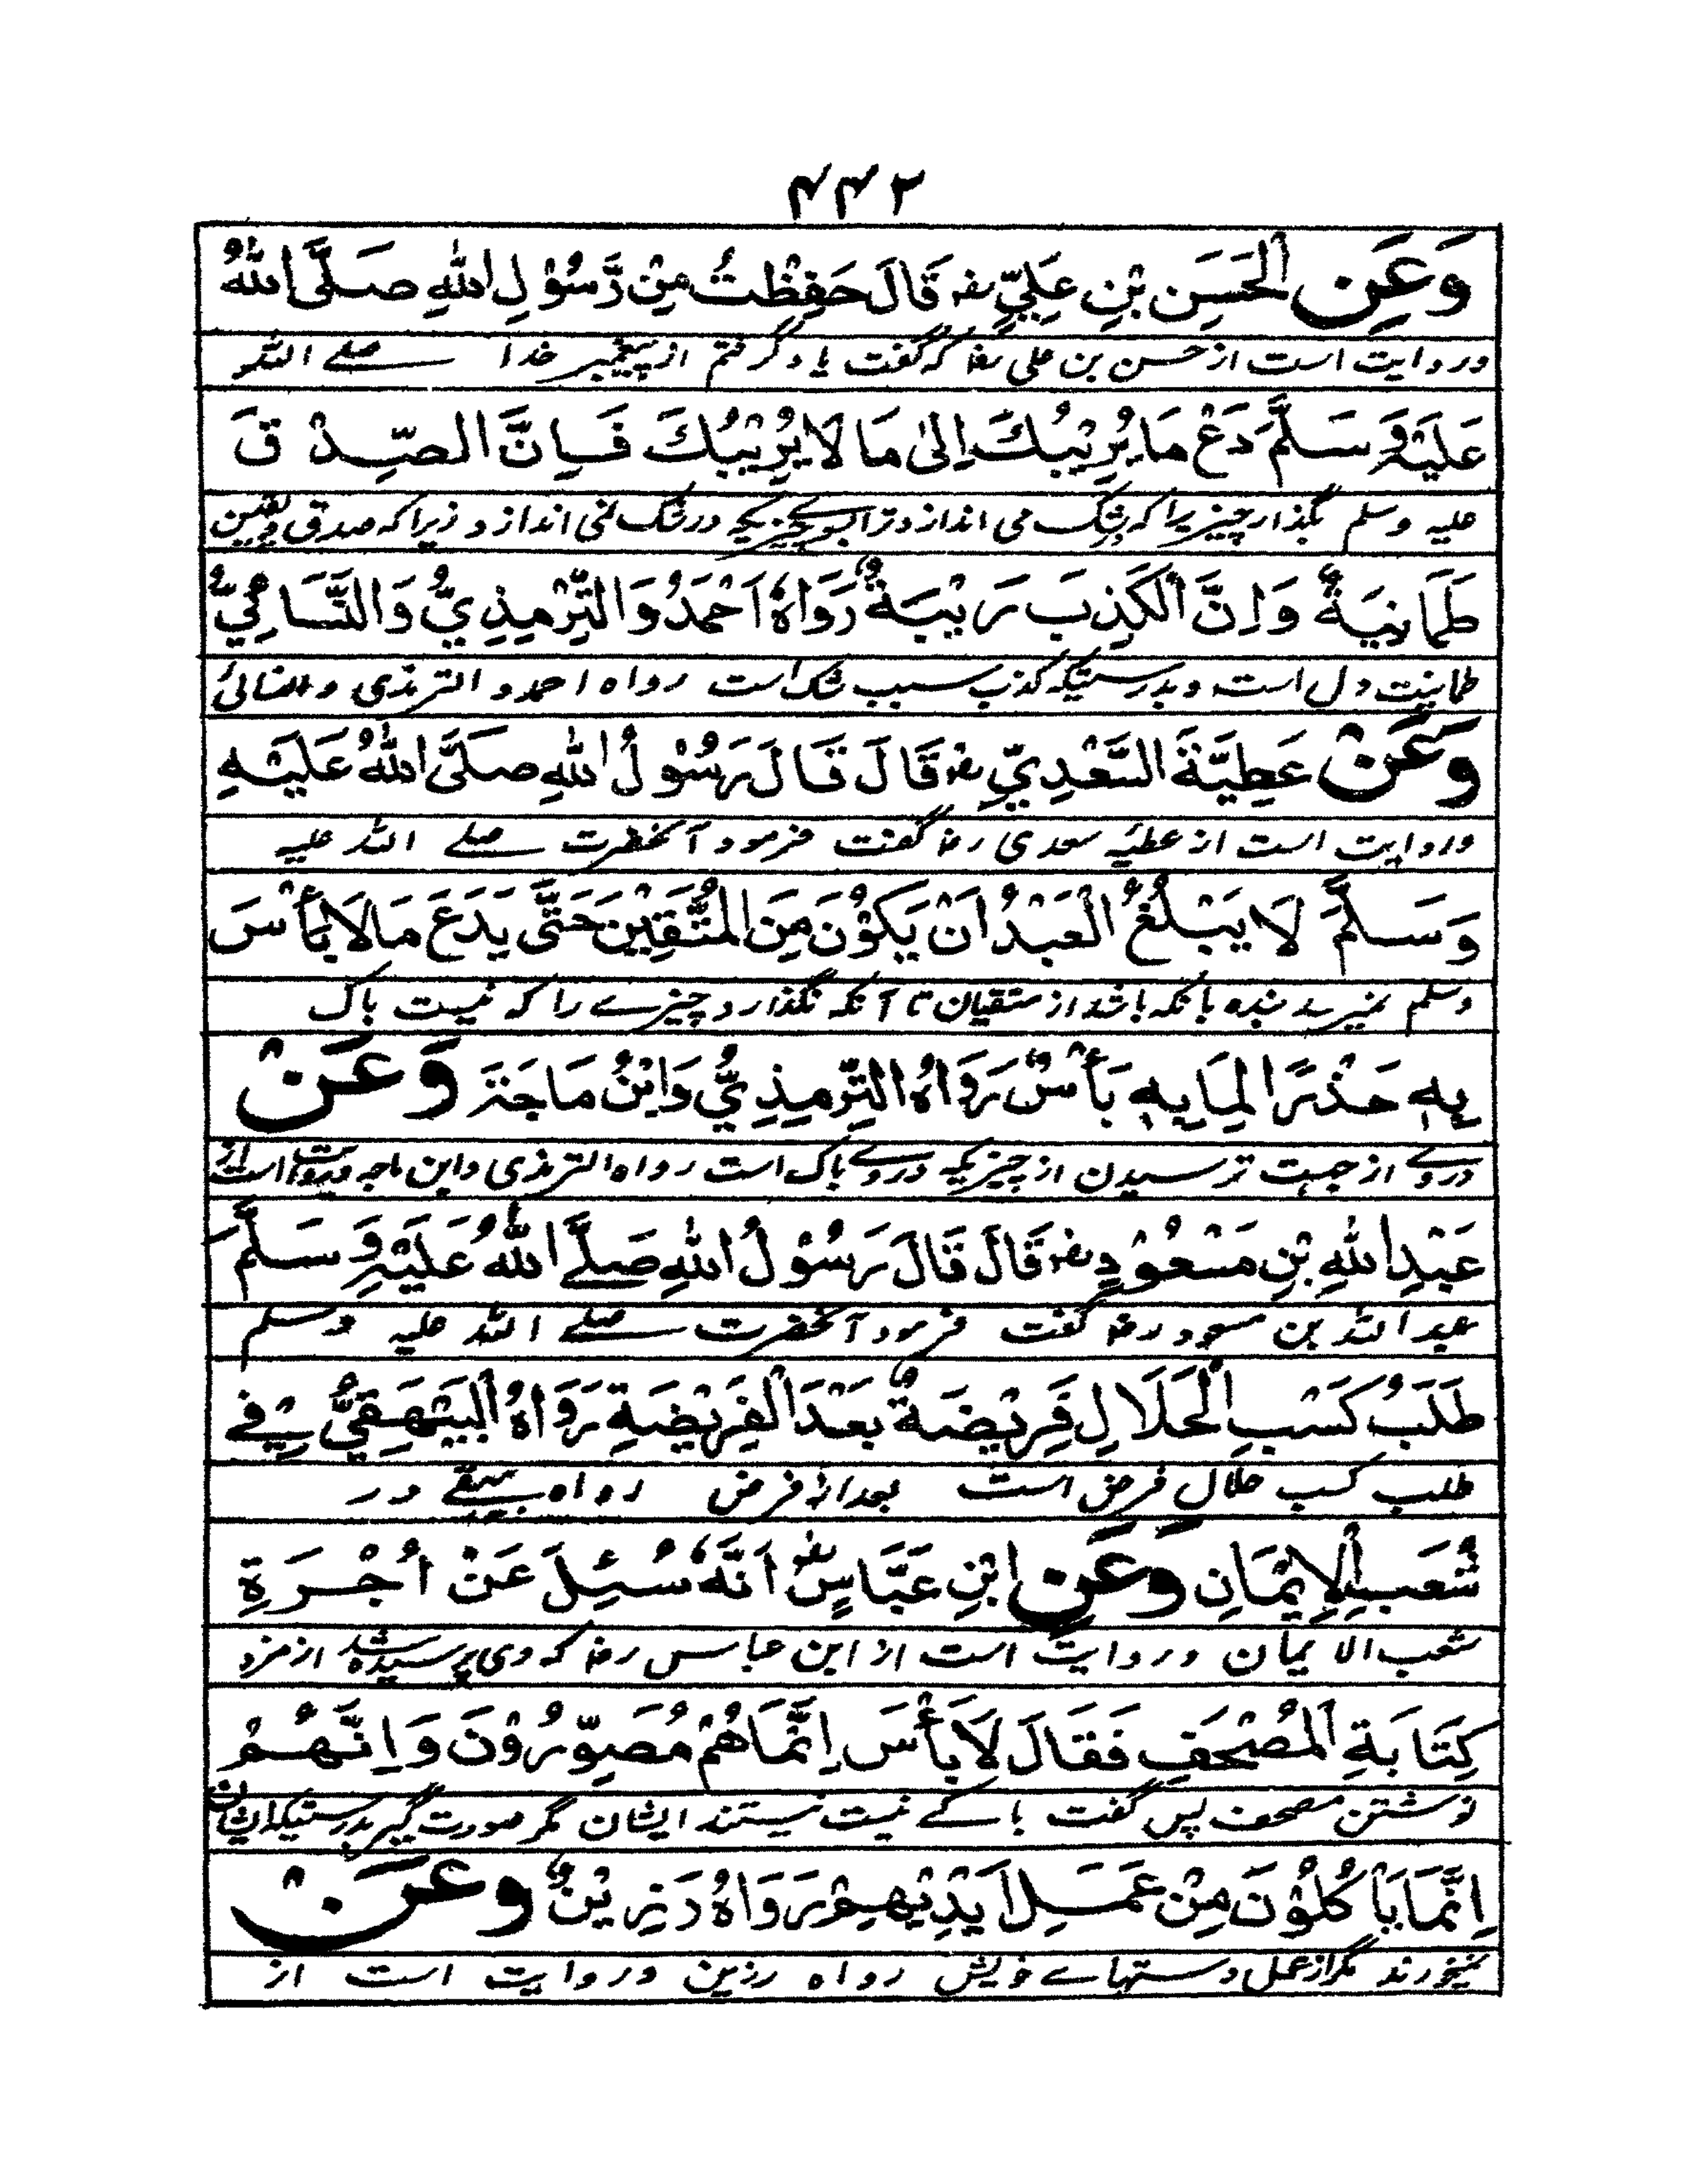 ۲۴۴
وَعَنِ الْحَسَنِ بْنِ عَلِيٍّ رضه قَالَ حَفِظْتُ مِنْ رَّسُوْلِ اللهِ صَلَّى اللهُ
و روایت است از حسن بن علی رضا که گفت یاد گرفتم از پیغمبر خدا صلے اللہ
عَلَيْهِ وَسَلَّمَ دَعْ مَا يُرِيْبُكَ اِلىٰ مَا لَا يُرِيْبُكَ فَاِنَّ الصِّدْقَ
علیہ وسلم بگذار چیزیرا که بشک می اندازد ترا بسوے چیزیکہ در شک نمی اندازد زیراکہ صدق و یقین
طَمَانِيَةٌ وَاِنَّ الْكَذِبَ رَيْبَةٌ رَوَاهُ اَحْمَدُ وَالتِّرْمِذِيُّ وَالنَّسَائِيُّ
طمانیت دل است و بدرستیکہ کذب سبب شک است رواہ احمد و الترمذی و النسائی
وَعَنْ عَطِيَّةَ السَّعْدِيِّ رضه قَالَ قَالَ رَسُوْلُ اللهِ صَلَّى اللهُ عَلَيْهِ
و روایت است از عطیہ سعدی رضا گفت فرمود آنحضرت صلے اللہ علیہ
وَسَلَّمَ لَا يَبْلُغُ الْعَبْدُ اَنْ يَكُوْنَ مِنَ الْمُتَّقِيْنَ حَتَّى يَدَعَ مَا لَا بَأْسَ
وسلم نمیرسد بندہ بانکہ باشد از متقیان تا آنکہ نگذارد چیزے را کہ نیست باک
بِهٖ حَذْرًا لِمَا بِهٖ بَأْسٌ رَوَاهُ التِّرْمِذِيُّ وَابْنُ مَاجَةَ وَعَنْ
دروے از جہت ترسیدن از چیزیکہ دروے باک است رواہ الترمذی و ابن ماجہ و روایت است از
عَبْدِ اللهِ بْنِ مَسْعُوْدٍ رضه قَالَ قَالَ رَسُوْلُ اللهِ صَلَّے اللهُ عَلَيْهِ وَسَلَّمَ
عبد اللہ بن مسعود رضہ گفت فرمود آنحضرت صلے اللہ علیہ وسلم
طَلَبُ كَسْبِ الْحَلَالِ فَرِيْضَةٌ بَعْدَ الْفَرِيْضَةِ رَوَاهُ الْبَيْهَقِيُّ فِيْ
طلب کسب حلال فرض است بعد از فرض رواہ بیہقے در
شُعَبِ الْاِيْمَانِ وَعَنِ ابْنِ عَبَّاسٍ رضه اَنَّهٗ سُئِلَ عَنْ اُجْرَةِ
شعب الایمان و روایت است از ابن عباس رضا کہ وی پرسیدہ شد از مزد
كِتَابَةِ الْمُصْحَفِ فَقَالَ لَا بَأْسَ اِنَّمَا هُمْ مُصَوِّرُوْنَ وَاِنَّهُمْ
نوشتن مصحف پس گفت باکے نیست نیستند ایشان مگر صورت گیر بدرستیکہ ایشان
اِنَّمَا يَاْكُلُوْنَ مِنْ عَمَلِ اَيْدِيْهِمْ رَوَاهُ رَزِيْنٌ وَعَنْ
نمیخورند مگر از عمل دستہاے خویش رواہ رزین و روایت است از